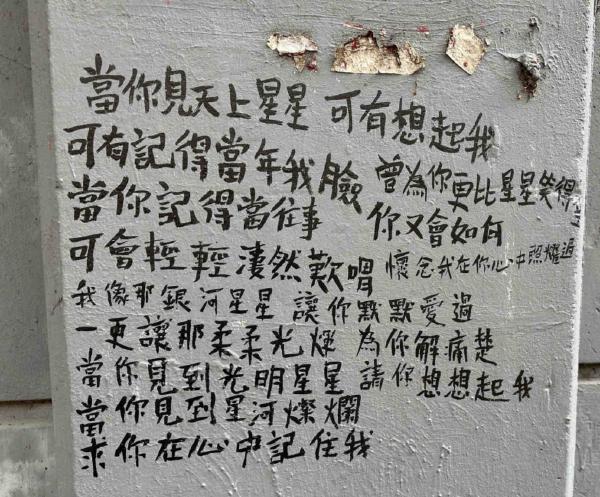 當你見天上星星 可有想起我
可有記得當年我臉 曾為你更比星星笑得
當你記得當往事 你又會如何
可會輕輕淒然歎喟 懷念我在你心中照耀過
我像那銀河星星 讓你默默愛過
一更讓那柔柔光燦 為你解痛楚
當你見到光明星星 請你想想起我
當你見到星河燦爛
求你在心中記住我